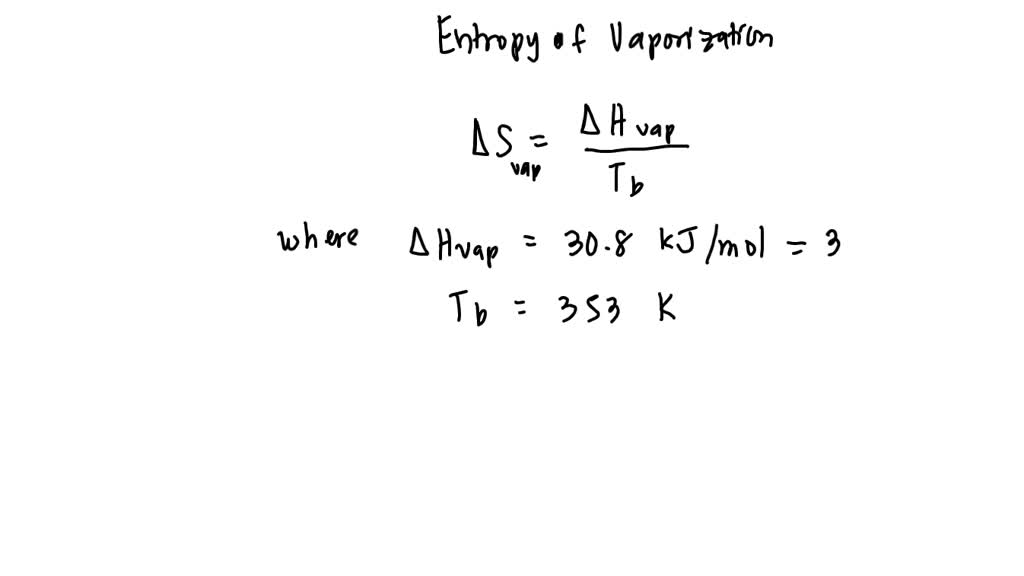 Entropy of Vaporization
ΔS_vap = ΔH_vap / T_b
where ΔH_vap = 30.8 kJ/mol = 3
T_b = 353 K